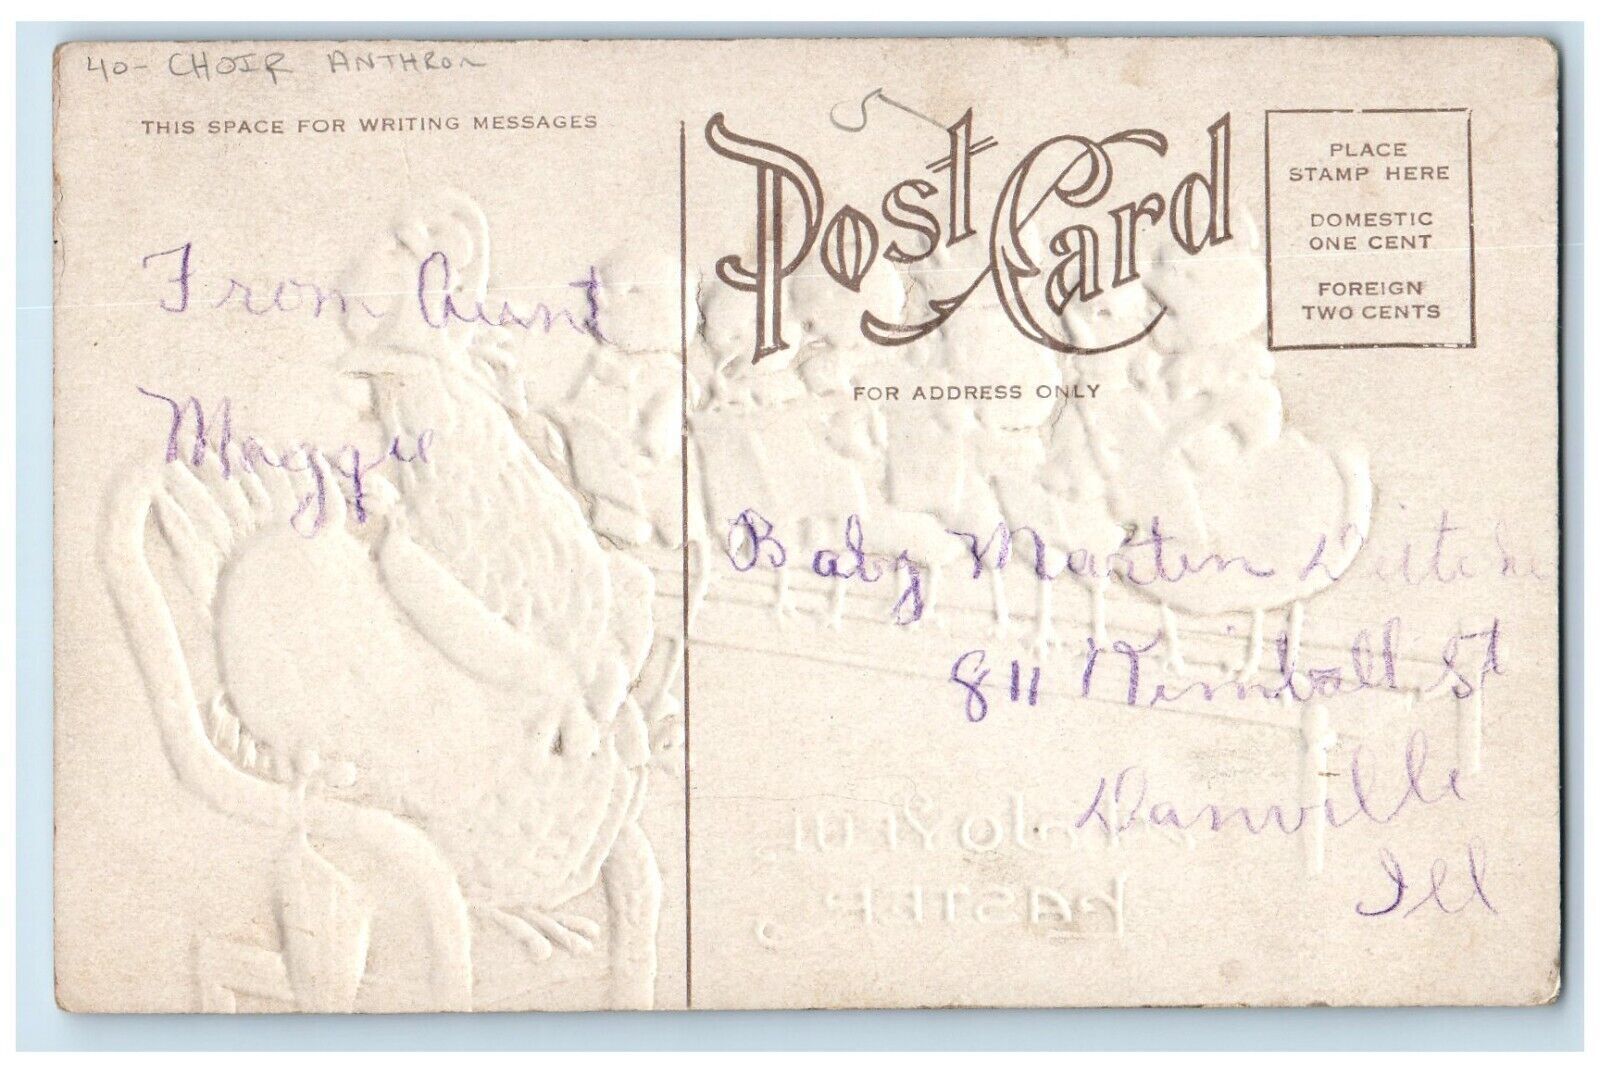 40- CHOIR ANTHROM
THIS SPACE FOR WRITING MESSAGES
Post Card
PLACE
STAMP HERE
DOMESTIC
ONE CENT
FOREIGN
TWO CENTS
FOR ADDRESS ONLY
From Aunt
Maggie
Baby Martin
811 Kimball St
Danville
Ill
EASTER